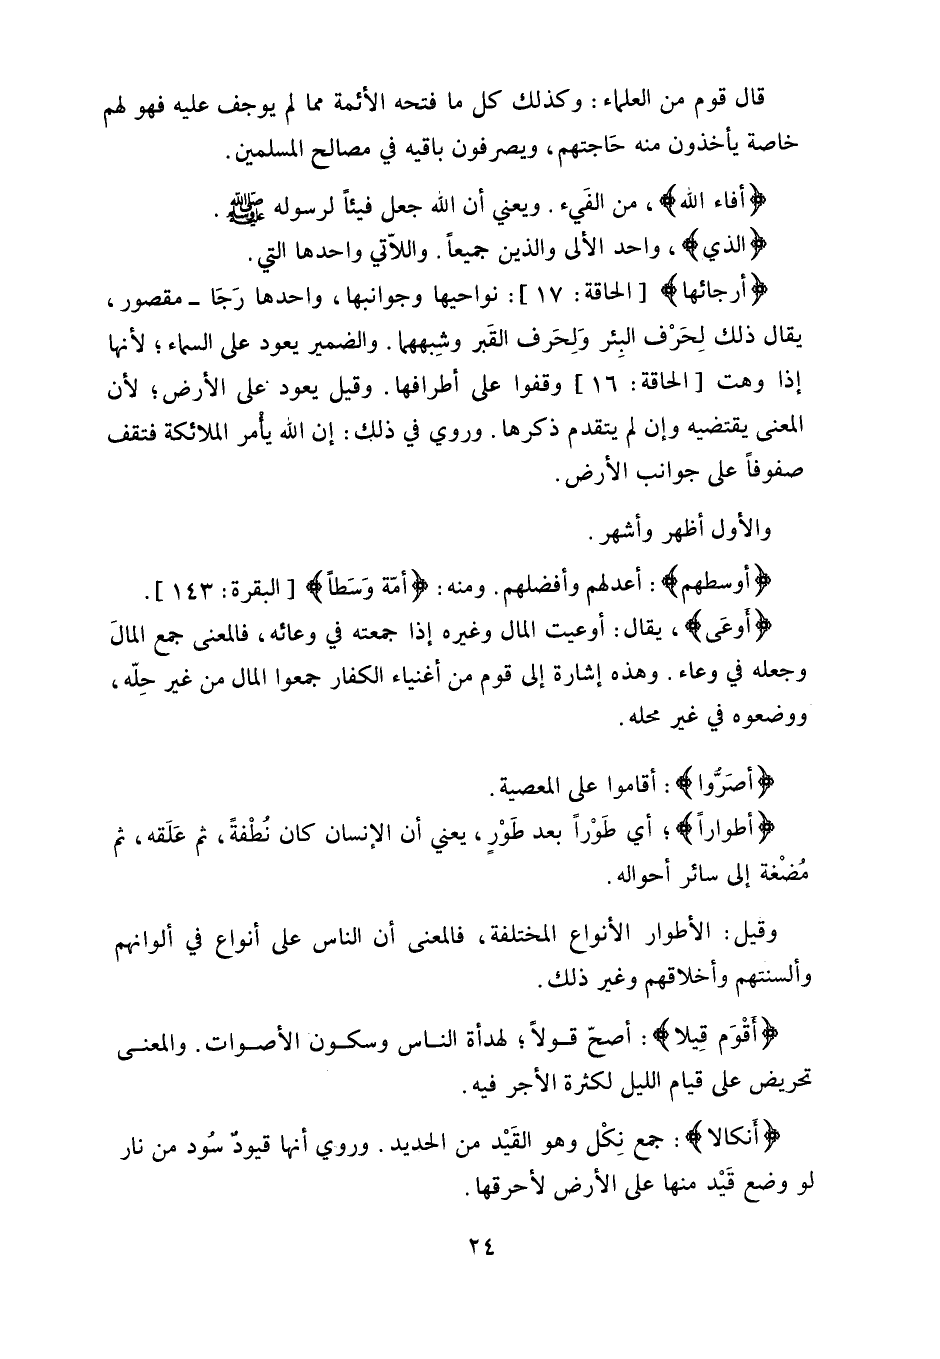 قال قوم من العلماء: وكذلك كل ما فتحه الأئمة مما لم يوجف عليه فهو لهم
خاصة يأخذون منه حَاجتهم، ويصرفون باقيه في مصالح المسلمين.
﴿أفاء الله﴾، من الفَيء. ويعني أن الله جعل فيئاً لرسوله ﷺ.
﴿الذي﴾، واحد الألى والذين جميعاً. واللاّتي واحدها التي.
﴿أرجائها﴾ [الحاقة: ١٧]: نواحيها وجوانبها، واحدها رَجَا ـ مقصور،
يقال ذلك لِحَرْف البِئر وَلِحَرف القَبر وشبههما. والضمير يعود على السماء؛ لأنها
إذا وهت [الحاقة: ١٦] وقفوا على أطرافها. وقيل يعود على الأرض؛ لأن
المعنى يقتضيه وإن لم يتقدم ذكرها. وروي في ذلك: إن الله يأْمر الملائكة فتقف
صفوفاً على جوانب الأرض.
والأول أظهر وأشهر.
﴿أوسطهم﴾: أعدلهم وأفضلهم. ومنه: ﴿أمّة وَسَطاً﴾ [البقرة: ١٤٣].
﴿أَوعَى﴾، يقال: أوعيت المال وغيره إذا جمعته في وعائه، فالمعنى جمع المالَ
وجعله في وعاء. وهذه إشارة إلى قوم من أغنياء الكفار جمعوا المال من غير حِلّه،
ووضعوه في غير محله.
﴿أصَرُّوا﴾: أقاموا على المعصية.
﴿أطواراً﴾؛ أي طَوْراً بعد طَوْرٍ، يعني أن الإنسان كان نُطْفةً، ثم عَلَقه، ثم
مُضْغة إلى سائر أحواله.
وقيل: الأطوار الأنواع المختلفة، فالمعنى أن الناس على أنواع في ألوانهم
وألسنتهم وأخلاقهم وغير ذلك.
﴿أَقْوَم قِيلا﴾: أصحّ قـولاً؛ لهدأة النـاس وسكـون الأصـوات. والمعنـى
تحريض على قيام الليل لكثرة الأجر فيه.
﴿أَنكالا﴾: جمع نِكْل وهو القَيْد من الحديد. وروي أنها قيودٌ سُود من نار
لو وضع قَيْد منها على الأرض لأحرقها.
٢٤